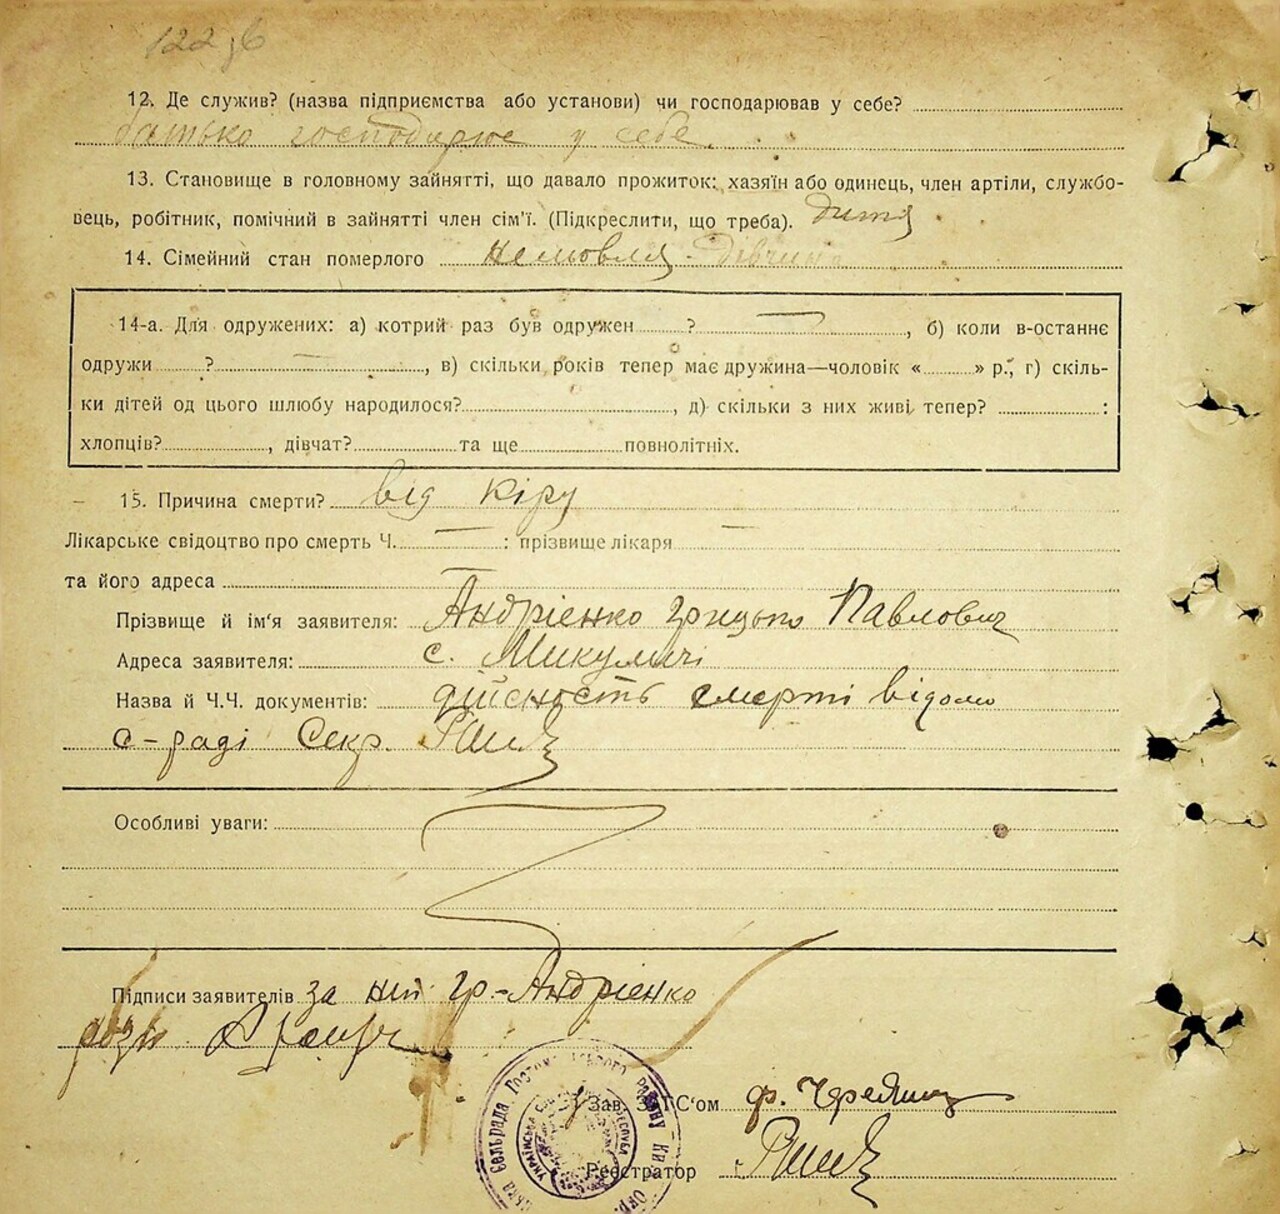 122 зб
12. Де служив? (назва підприємства або установи) чи господарював у себе?
батько господарює у себе.
13. Становище в головному зайнятті, що давало прожиток: хазяїн або одинець, член артіли, службо-
вець, робітник, помічний в зайнятті член сім'ї. (Підкреслити, що треба). дитя
14. Сімейний стан померлого немовля - дівчина
14-а. Для одружених: а) котрий раз був одружен ? —, б) коли в-останнє
одружи ? —, в) скільки років тепер має дружина—чоловік « » р., г) скіль-
ки дітей од цього шлюбу народилося? , д) скільки з них живі тепер? :
хлопців? , дівчат? та ще повнолітніх.
15. Причина смерти? від кіру
Лікарське свідоцтво про смерть Ч. — : прізвище лікаря —
та його адреса —
Прізвище й ім'я заявителя: Андрієнко Грицько Павлович
Адреса заявителя: с. Микуличі
Назва й Ч.Ч. документів: дійсність смерті відомо
с-раді Секр.
Особливі уваги:
Підписи заявителів за неп. гр.-Андрієнко
розп.
Зав. ЗАГС'ом
Реєстратор
сельрада Району Ки Окр.
УКРАЇНСЬКА